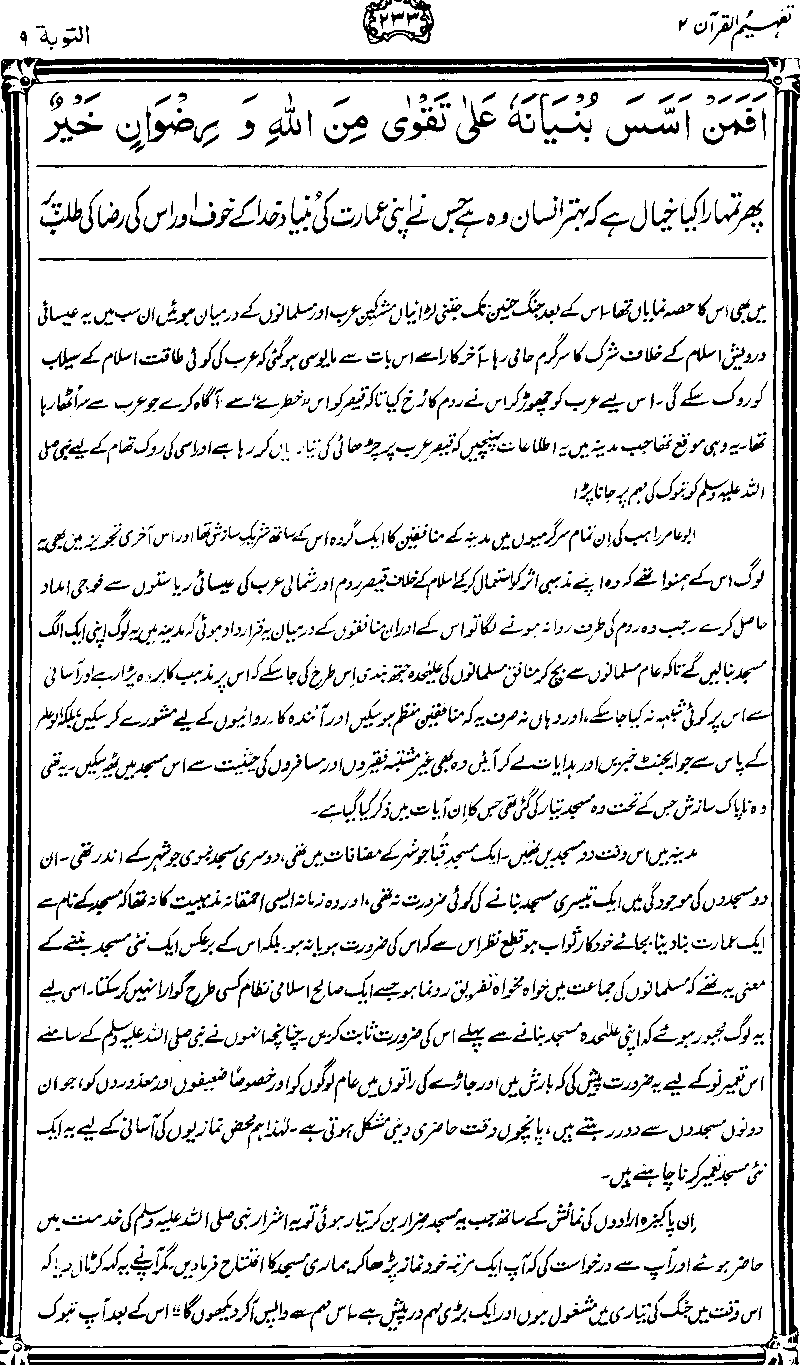 تفہیم القرآن ۲
۲۳۳
التوبۃ ۹
اَفَمَنْ اَسَّسَ بُنْيَانَهٗ عَلٰى تَقْوٰى مِنَ اللّٰهِ وَ رِضْوَانٍ خَيْرٌ
پھر تمہارا کیا خیال ہے کہ بہتر انسان وہ ہے جس نے اپنی عمارت کی بنیاد خدا کے خوف اور اس کی رضا کی طلب پر
میں بھی اس کا حصہ نمایاں تھا۔ اس کے بعد جنگ حنین تک جتنی لڑائیاں مشرکین عرب اور مسلمانوں کے درمیان ہوئیں ان سب میں یہ عیسائی
درویش اسلام کے خلاف شرک کا سرگرم حامی رہا۔ آخر کار اسے اس بات سے مایوسی ہوگئی کہ عرب کی کوئی طاقت اسلام کے سیلاب
کو روک سکے گی۔ اس لیے عرب کو چھوڑ کر اس نے روم کا رُخ کیا تاکہ قیصر کو اس ”خطرے“ سے آگاہ کرے جو عرب سے سر اُٹھا رہا
تھا۔ یہ وہی موقع تھا جب مدینہ میں یہ اطلاعات پہنچیں کہ قیصر عرب پر چڑھائی کی تیاریاں کر رہا ہے اور اسی کی روک تھام کے لیے نبی صلی
اللہ علیہ وسلم کو تبوک کی مہم پر جانا پڑا۔
ابو عامر راہب کی اِن تمام سرگرمیوں میں مدینہ کے منافقین کا ایک گروہ اس کے ساتھ شریک سازش تھا اور اس آخری تجویز میں بھی یہ
لوگ اس کے ہمنوا تھے کہ وہ اپنے مذہبی اثر کو استعمال کرکے اسلام کے خلاف قیصر روم اور شمالی عرب کی عیسائی ریاستوں سے فوجی امداد
حاصل کرے۔ جب وہ روم کی طرف روانہ ہونے لگا تو اس کے اور ان منافقوں کے درمیان یہ قرارداد ہوئی کہ مدینہ میں یہ لوگ اپنی ایک الگ
مسجد بنا لیں گے تاکہ عام مسلمانوں سے بچ کر منافق مسلمانوں کی علیٰحدہ جتھہ بندی اس طرح کی جا سکے کہ اس پر مذہب کا پردہ پڑا رہے اور آسانی
سے اس پر کوئی شبہ نہ کیا جا سکے، اور وہاں نہ صرف یہ کہ منافقین منظم ہو سکیں اور آئندہ کارروائیوں کے لیے مشورے کر سکیں، بلکہ ابو عامر
کے پاس سے جو ایجنٹ خبریں اور ہدایات لے کر آئیں وہ بھی غیر مشتبہ فقیروں اور مسافروں کی حیثیت سے اس مسجد میں ٹھیر سکیں۔ یہ تھی
وہ ناپاک سازش جس کے تحت وہ مسجد تیار کی گئی تھی جس کا اِن آیات میں ذکر کیا گیا ہے۔
مدینہ میں اس وقت دو مسجدیں تھیں۔ ایک مسجد قُبا جو شہر کے مضافات میں تھی، دوسری مسجد نبوی جو شہر کے اندر تھی۔ ان
دو مسجدوں کی موجودگی میں ایک تیسری مسجد بنانے کی کوئی ضرورت نہ تھی، اور وہ زمانہ ایسی احمقانہ مذہبیت کا نہ تھا کہ مسجد کے نام سے
ایک عمارت بنا دینا بجائے خود کار ثواب ہو قطع نظر اس سے کہ اس کی ضرورت ہو یا نہ ہو۔ بلکہ اس کے برعکس ایک نئی مسجد بننے کے
معنی یہ تھے کہ مسلمانوں کی جماعت میں خواہ مخواہ تفریق رونما ہو جسے ایک صالح اسلامی نظام کسی طرح گوارا نہیں کر سکتا۔ اسی لیے
یہ لوگ مجبور ہوئے کہ اپنی علیٰحدہ مسجد بنانے سے پہلے اس کی ضرورت ثابت کریں۔ چنانچہ انہوں نے نبی صلی اللہ علیہ وسلم کے سامنے
اس تعمیر نو کے لیے یہ ضرورت پیش کی کہ بارش میں اور جاڑے کی راتوں میں عام لوگوں کو اور خصوصاً ضعیفوں اور معذوروں کو، جو ان
دونوں مسجدوں سے دور رہتے ہیں، پانچوں وقت حاضری دینی مشکل ہوتی ہے۔ لہٰذا ہم محض نمازیوں کی آسانی کے لیے یہ ایک
نئی مسجد تعمیر کرنا چاہتے ہیں۔
اِن پاکیزہ ارادوں کی نمائش کے ساتھ جب یہ مسجد ضرار بن کر تیار ہوئی تو یہ اشرار نبی صلی اللہ علیہ وسلم کی خدمت میں
حاضر ہوئے اور آپ سے درخواست کی کہ آپ ایک مرتبہ خود نماز پڑھا کر ہماری مسجد کا افتتاح فرما دیں۔ مگر آپ نے یہ کہہ کر ٹال دیا کہ
”اس وقت میں جنگ کی تیاری میں مشغول ہوں اور ایک بڑی مہم درپیش ہے۔ اس مہم سے واپس آکر دیکھوں گا“۔ اس کے بعد آپ تبوک